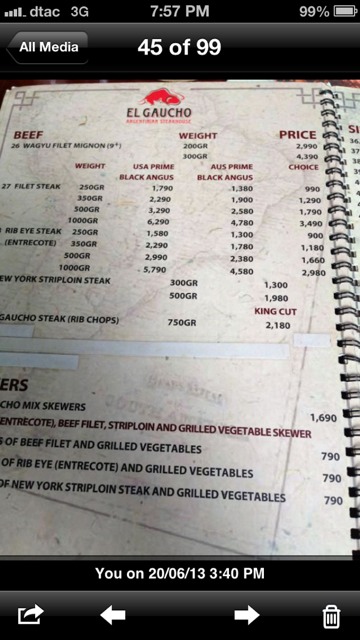 dtac 3G 7:57 PM 99%
All Media 45 of 99
EL GAUCHO
ARGENTINIAN STEAKHOUSE
BEEF WEIGHT PRICE
26 WAGYU FILET MIGNON (9+) 200GR 2,990
300GR 4,390
WEIGHT USA PRIME AUS PRIME CHOICE
BLACK ANGUS BLACK ANGUS
27 FILET STEAK 250GR 1,790 1,380 990
350GR 2,290 1,900 1,290
500GR 3,290 2,580 1,790
1000GR 6,290 4,780 3,490
RIB EYE STEAK 250GR 1,580 1,300 900
(ENTRECOTE) 350GR 2,290 1,780 1,180
500GR 2,990 2,380 1,660
1000GR 5,790 4,580 2,980
EW YORK STRIPLOIN STEAK 300GR 1,300
500GR 1,980
KING CUT
GAUCHO STEAK (RIB CHOPS) 750GR 2,180
ERS
CHO MIX SKEWERS 1,690
(ENTRECOTE), BEEF FILET, STRIPLOIN AND GRILLED VEGETABLE SKEWER
OF BEEF FILET AND GRILLED VEGETABLES 790
OF RIB EYE (ENTRECOTE) AND GRILLED VEGETABLES 790
OF NEW YORK STRIPLOIN STEAK AND GRILLED VEGETABLES 790
You on 20/06/13 3:40 PM